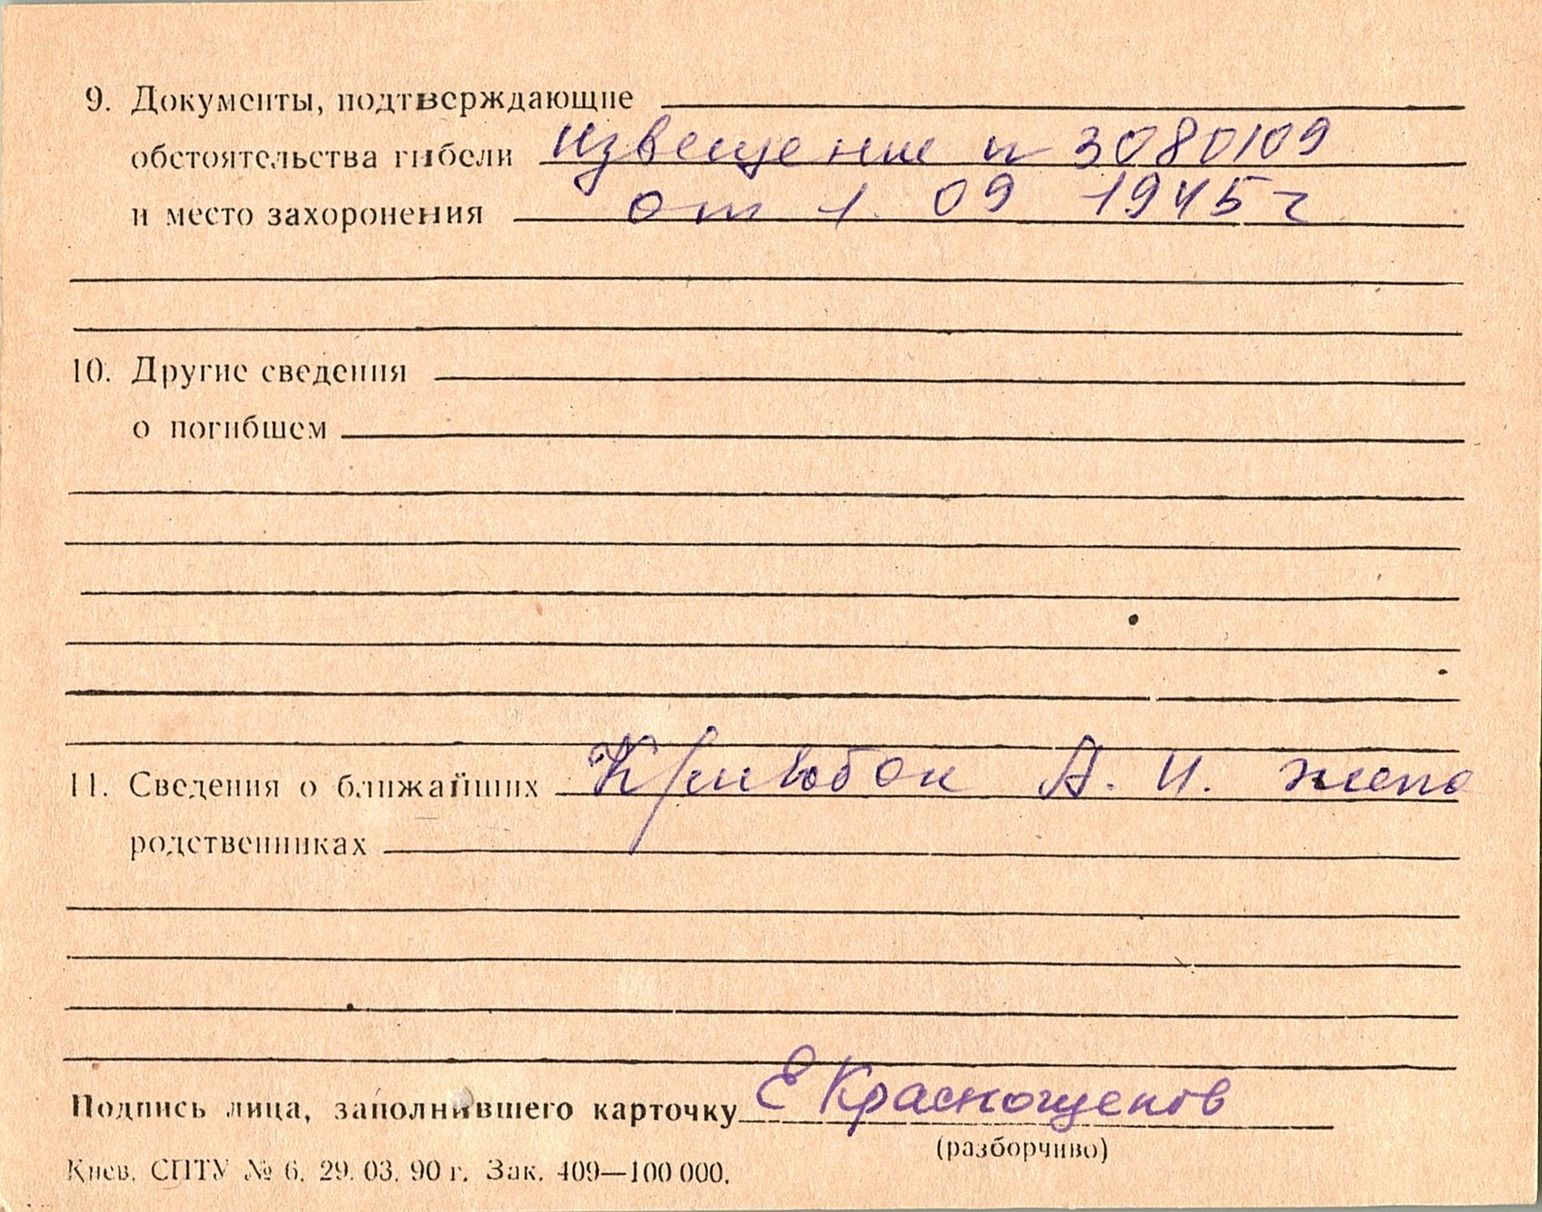 9. Документы, подтверждающие
обстоятельства гибели извещение n 3080109
и место захоронения от 1. 09 1945 г
10. Другие сведения
о погибшем
11. Сведения о ближайших А. И. жена
родственниках
Подпись лица, заполнившего карточку Е Краснощеков
(разборчиво)
Киев. СПТУ № 6. 29. 03. 90 г. Зак. 409—100 000.